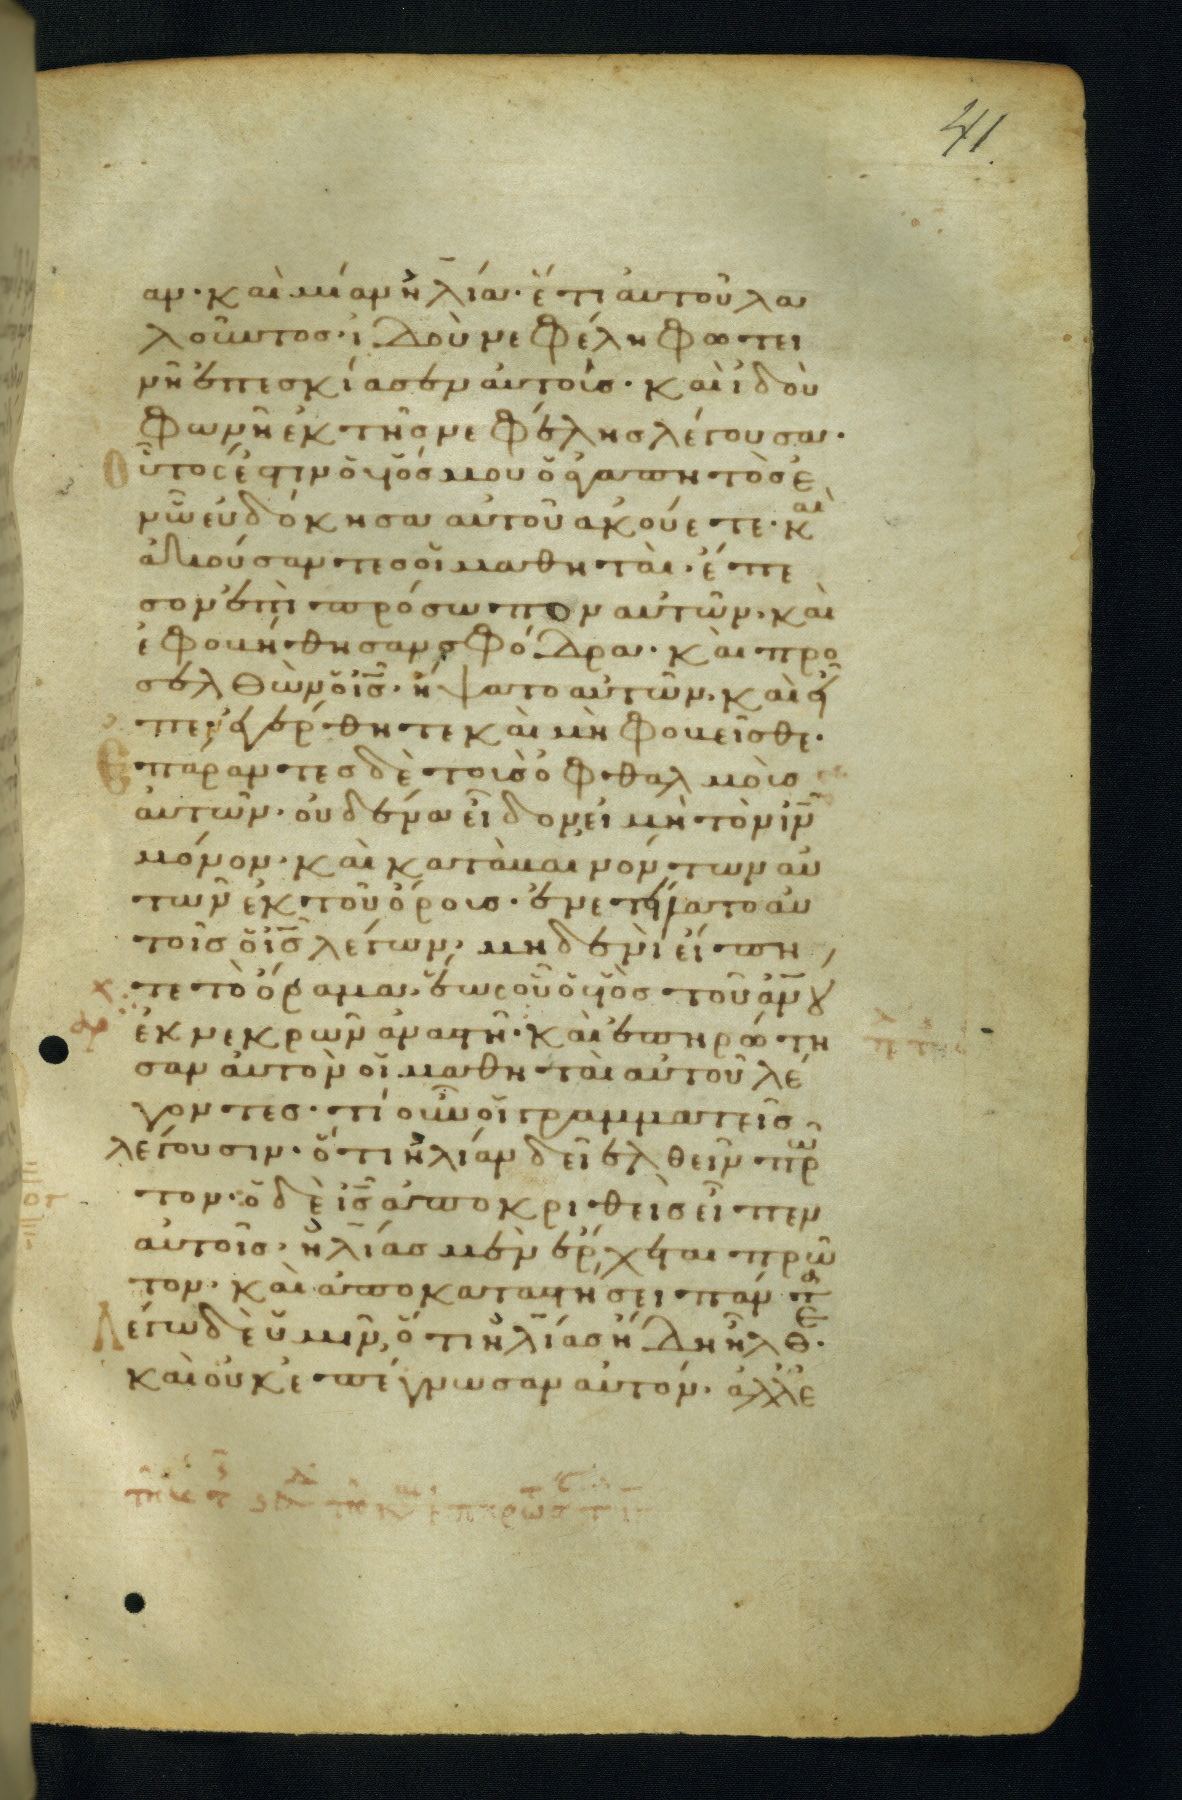 41.
αν· καὶ μίαν ἠλίαι· ἔτι αὐτοῦ λα
λοῦντος· ἰδοὺ νεφέλη φωτει
νὴ ἐπεσκίασεν αὐτοίσ· καὶ ἰδοὺ
φωνὴ ἐκ τῆσ νεφέλησ λέγουσα·
Οὗτός ἐστιν ὁ υἱόσ μου ὁ ἀγαπητὸσ ἐ
νῶ εὐδόκησα αὐτοῦ ακούετε· κ(αὶ)
ἀκούσαντεσ οἱ μαθηταὶ· ἔπε
σον ἐπὶ πρόσωπον αὐτῶν· καὶ
ἐφοβήθησαν σφόδρα· καὶ προ
σελθὼν ὁ ι̅σ̅· ἥψατο αὐτῶν· καὶ εἶ
πεν ἐγέρθητε καὶ μὴ φοβεῖσθε·
Ἐπάραντεσ δὲ τοὺσ ὀφθαλμοὺσ
αὐτῶν· οὐδένα εἶδον εἰ μὴ τὸν ι̅ν̅
μόνον· καὶ καταβαινόντων αὐ
τῶν ἐκ τοῦ ὄρουσ· ἐνετείλατο αὐ
τοῖσ ὁ ι̅σ̅ λέγων· μηδενὶ εἴπη
τε τὸ ὅραμα· ἕωσ οὗ ὁ υἱὸσ τοῦ α̅ν̅ου
ἐκ νεκρῶν ἀναστῆ· καὶ ἐπηρώτη
σαν αὐτὸν οἱ μαθηταὶ αὐτοῦ λέ
γοντεσ· τί οὖν οἱ γραμματεῖσ
λέγουσιν· ὅτι ἠλίαν δεῖ ἐλθεῖν πρῶ
τον· ὁ δὲ ι̅σ̅ ἀποκριθεὶσ εἶπεν
αὐτοῖσ· ἠλίασ μὲν ἔρχεται πρῶ
τον· καὶ ἀποκαταστήσει πάντα
Λέγω δὲ ὑμῖν, ὅτι ἠλίασ ἤδη ἦλθε·
καὶ οὐκ ἐπέγνωσαν αὐτόν· ἀλλ' ἐ